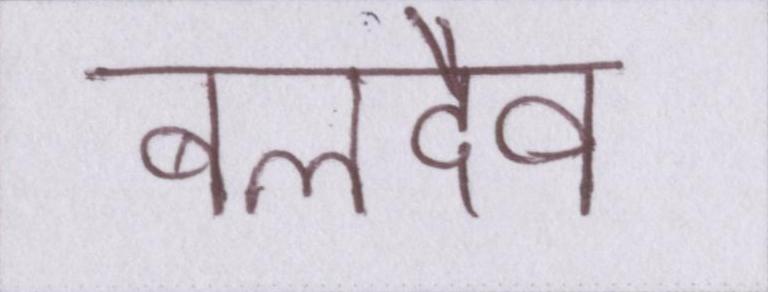 बलदैव